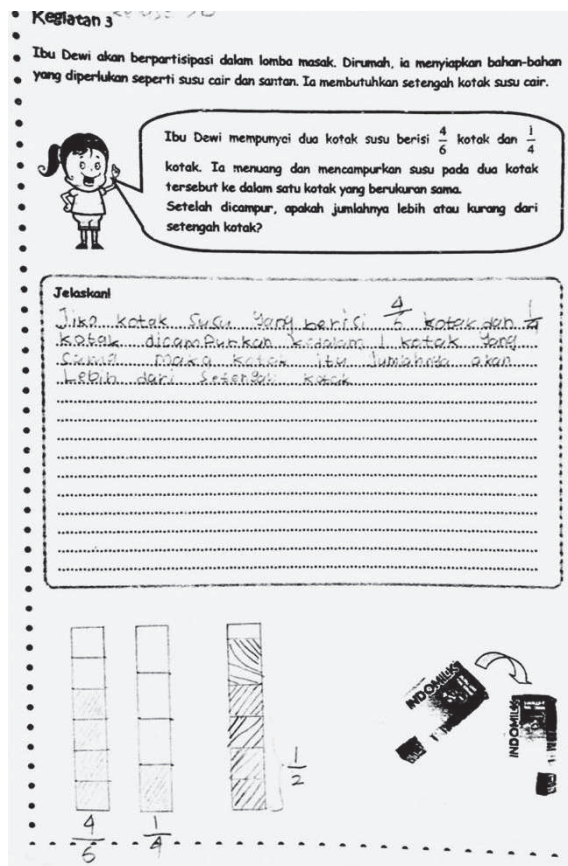 Kegiatan 3
Ibu Dewi akan berpartisipasi dalam lomba masak. Dirumah, ia menyiapkan bahan-bahan
yang diperlukan seperti susu cair dan santan. Ia membutuhkan setengah kotak susu cair.
Ibu Dewi mempunyai dua kotak susu berisi 4/6 kotak dan 1/4
kotak. Ia menuang dan mencampurkan susu pada dua kotak
tersebut ke dalam satu kotak yang berukuran sama.
Setelah dicampur, apakah jumlahnya lebih atau kurang dari
setengah kotak?
Jelaskan!
Jika kotak susu yang berisi 4/6 kotak dan 1/4
kotak dicampurkan kedalam 1 kotak yang
sama maka kotak itu jumlahnya akan
Lebih dari setengah kotak
1/2
INDOMILK
INDOMILK
4/6 1/4